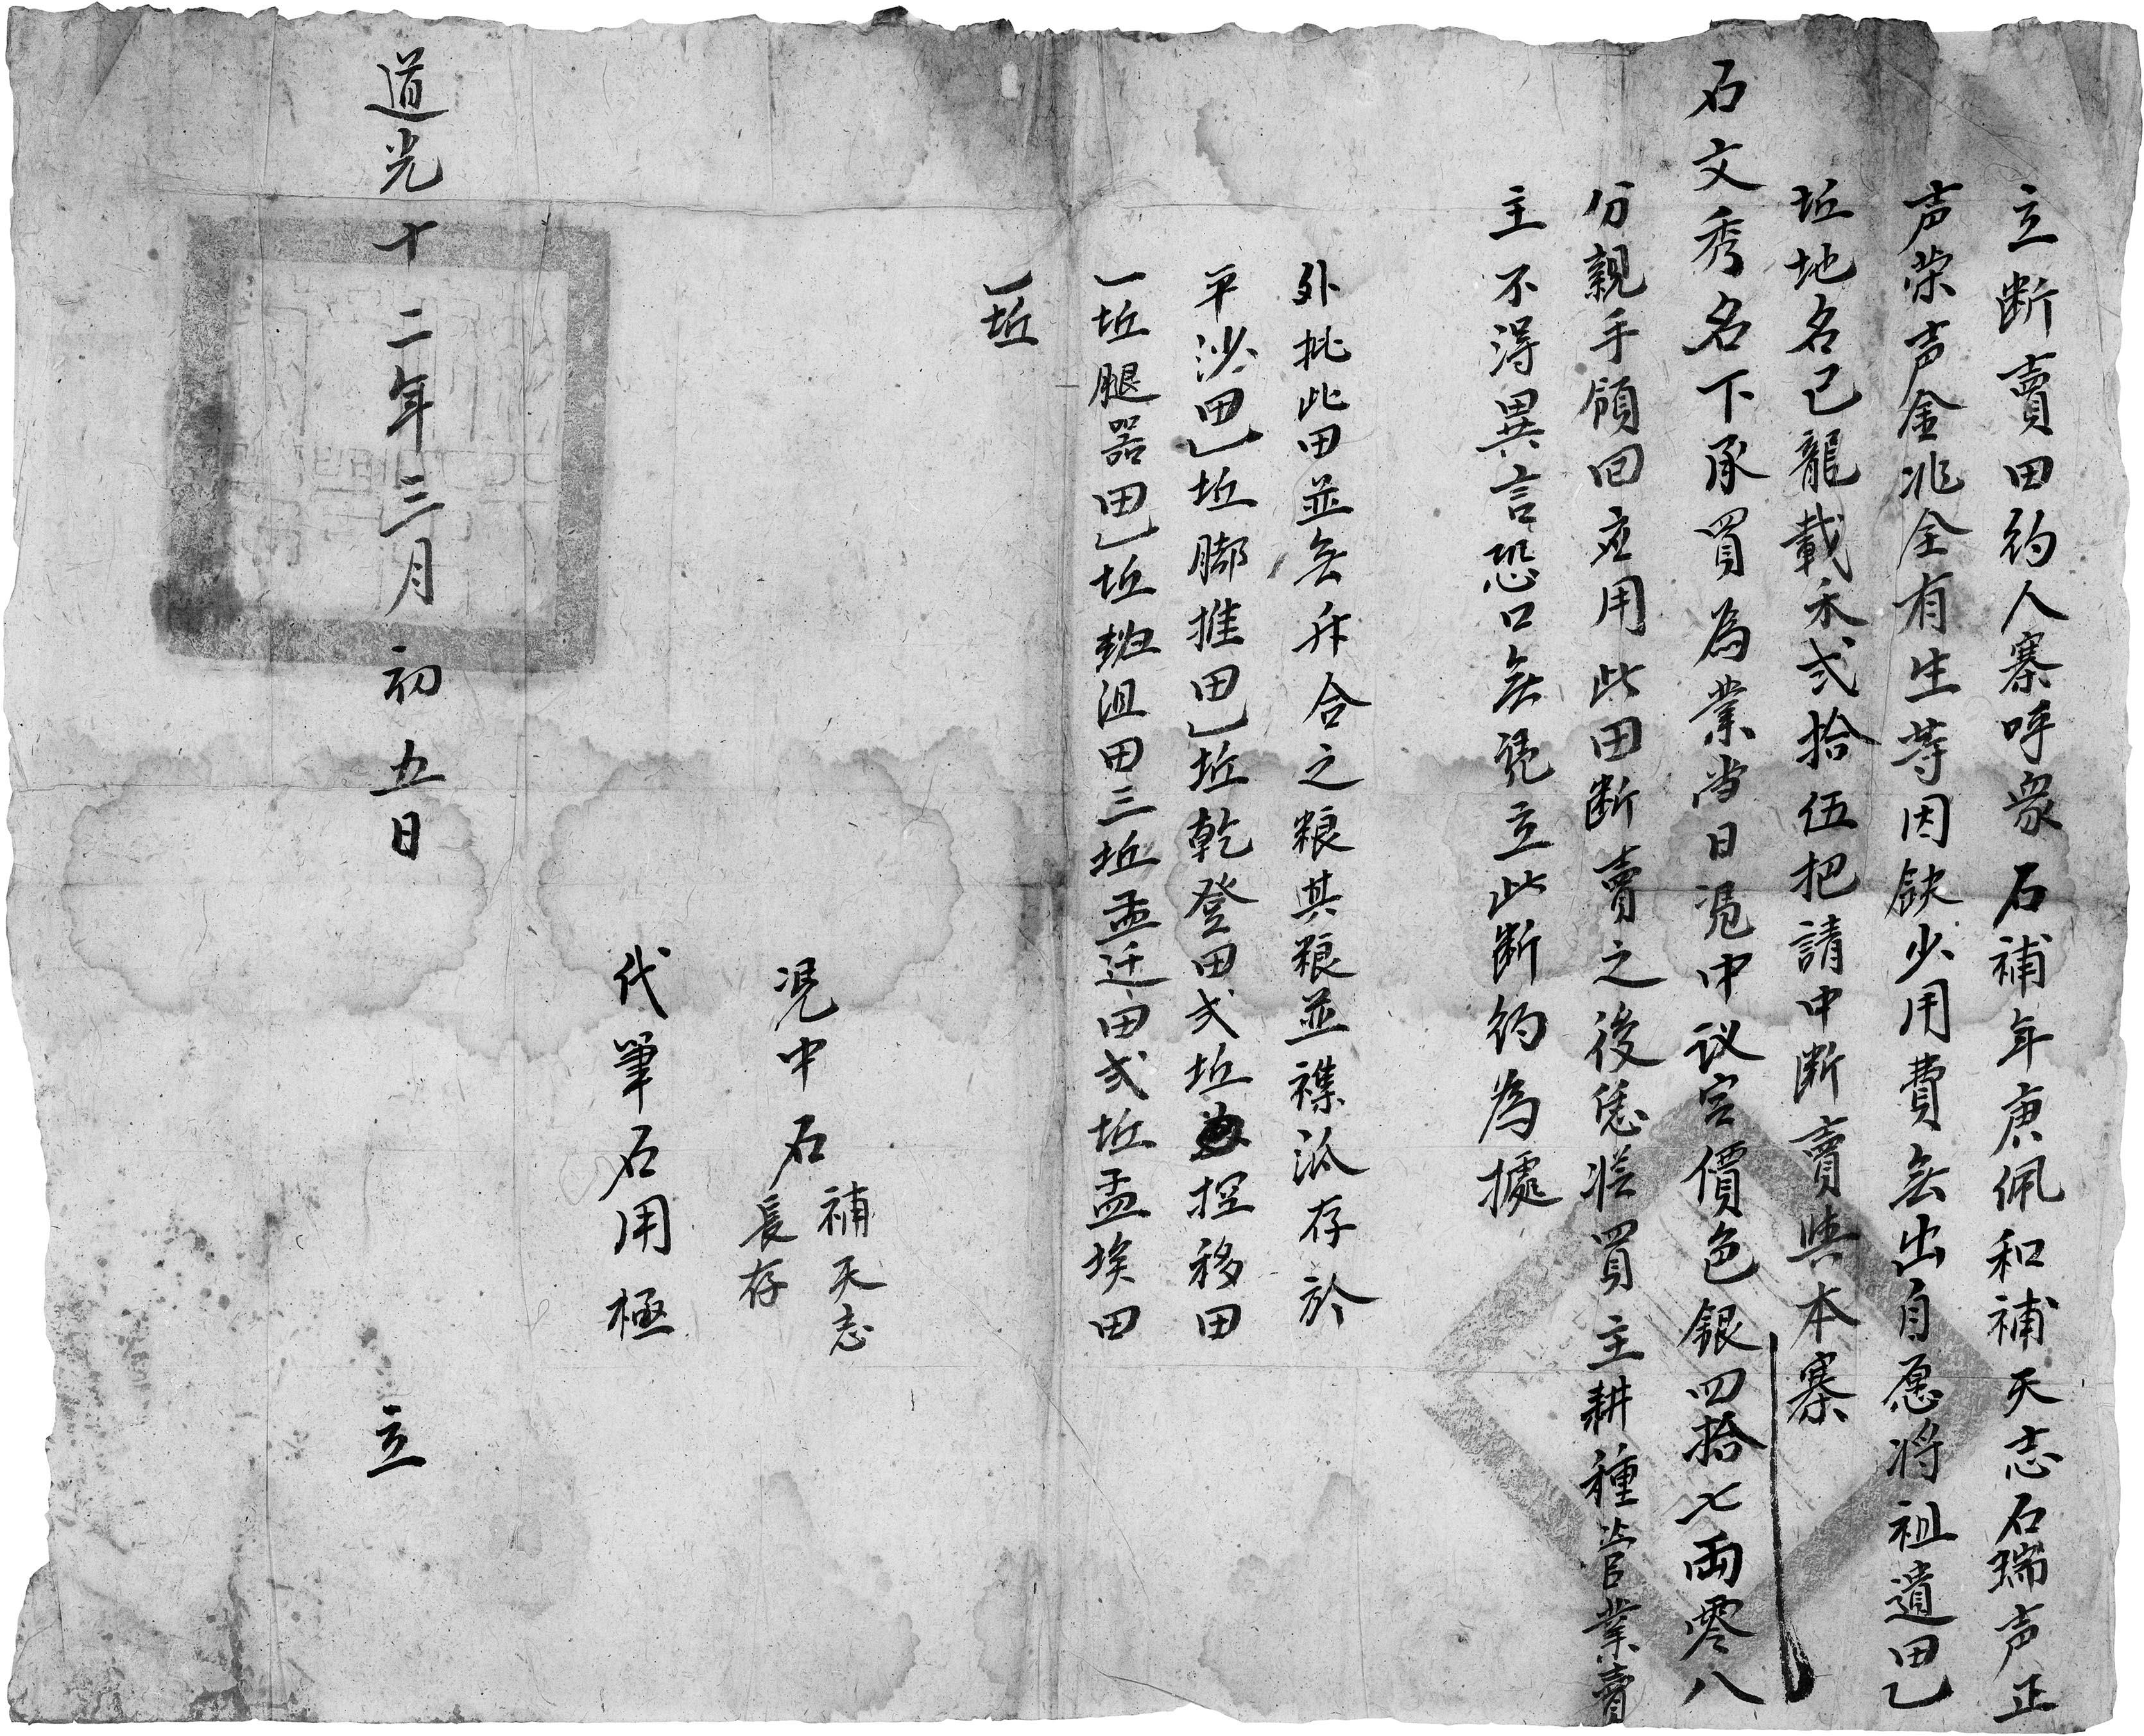 立断賣田约人寨呼衆石補年庚佩和補天志石瑞声正
声荣声金兆全有生等因缺少用費無出自愿将祖遺田乙
坵地名已龍載禾弍拾伍把請中断賣與本寨
石文秀名下承買為業当日凴中议定價色銀四拾七兩零八
分親手領回应用此田断賣之後恁從買主耕種管業賣
主不得異言恐口無凴立此断约為據
外批此田並無升合之粮其粮並襍派存於
平沙田乙坵脚推田乙坵乾登田弍坵控移田
一坵腿器田乙坵沮田三坵孟迁田弍坵孟埃田
一坵
凴中石補天志
長存
代筆石用極
道光十二年三月初五日立